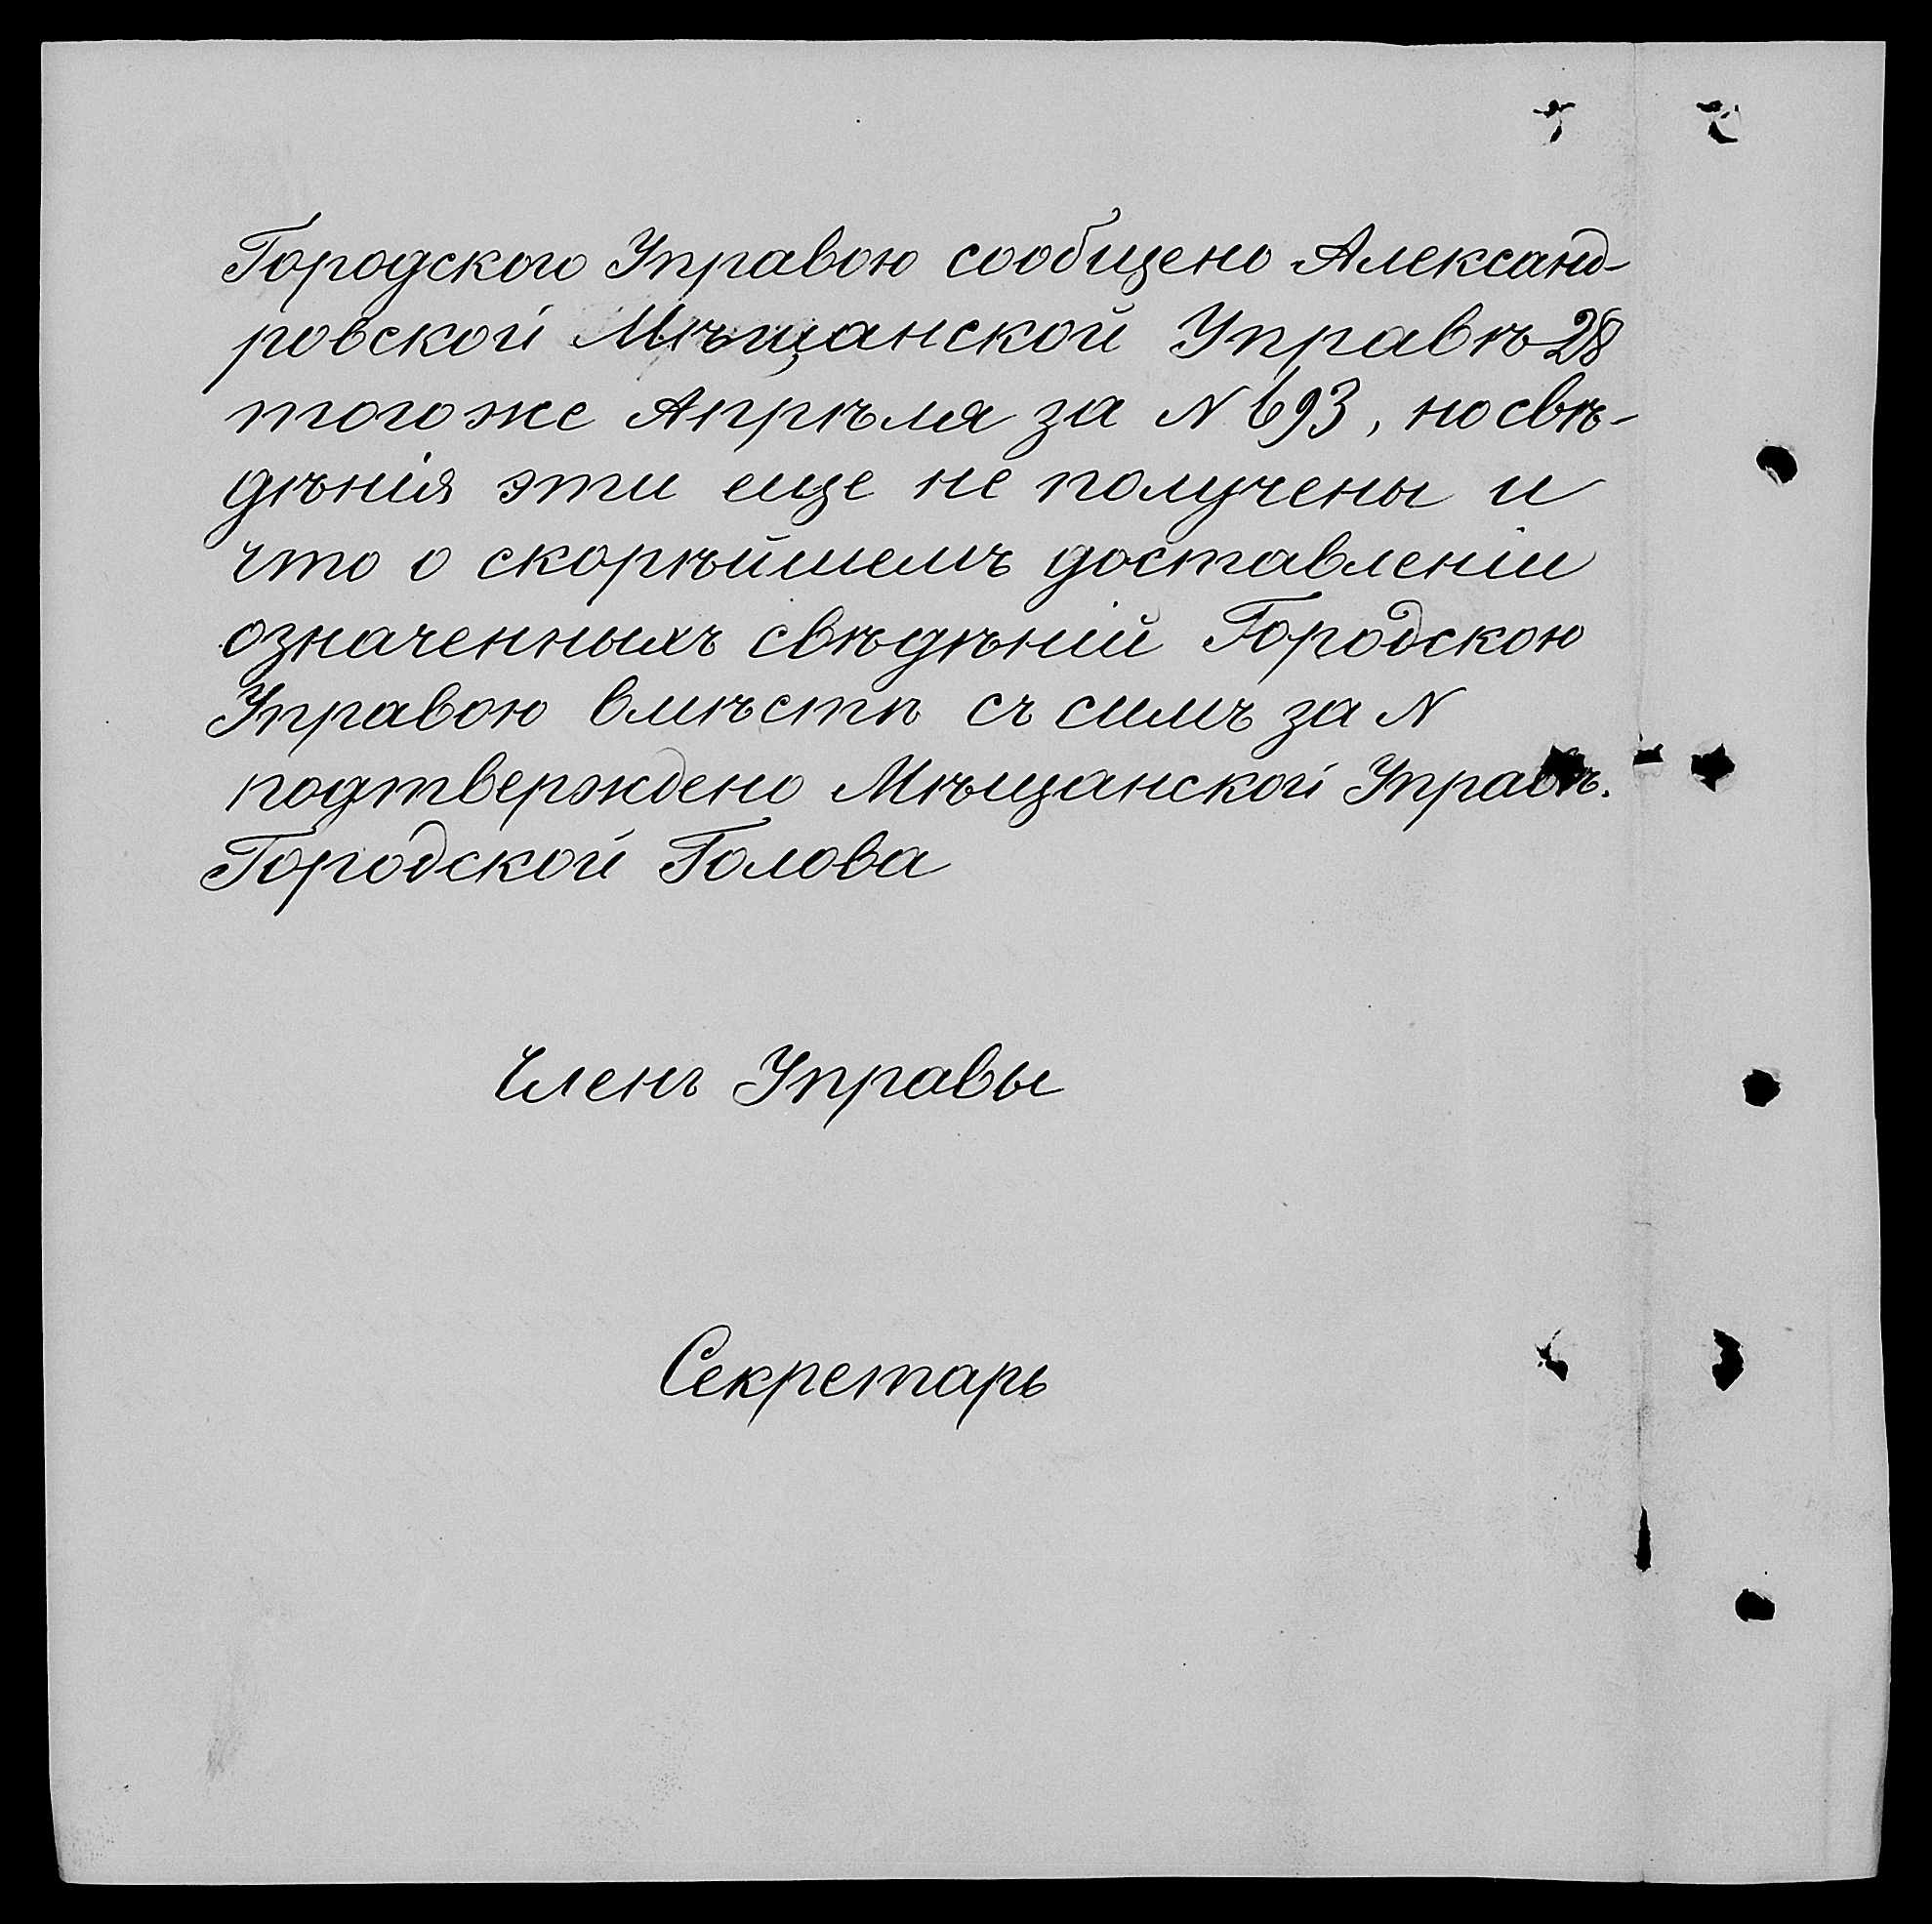 Городского Управою сообщено Александ-
ровской Мѣщанской Управѣ 28
того же Апрѣля за N 693, но свѣ-
дѣнія эти еще не получены и
что о скорѣйшемъ доставленіи
означенныхъ свѣдѣній Городскою
Управою вмѣстѣ съ симъ за N
подтверждено Мѣщанской Управѣ.
Городской Голова
Членъ Управы
Секретарь